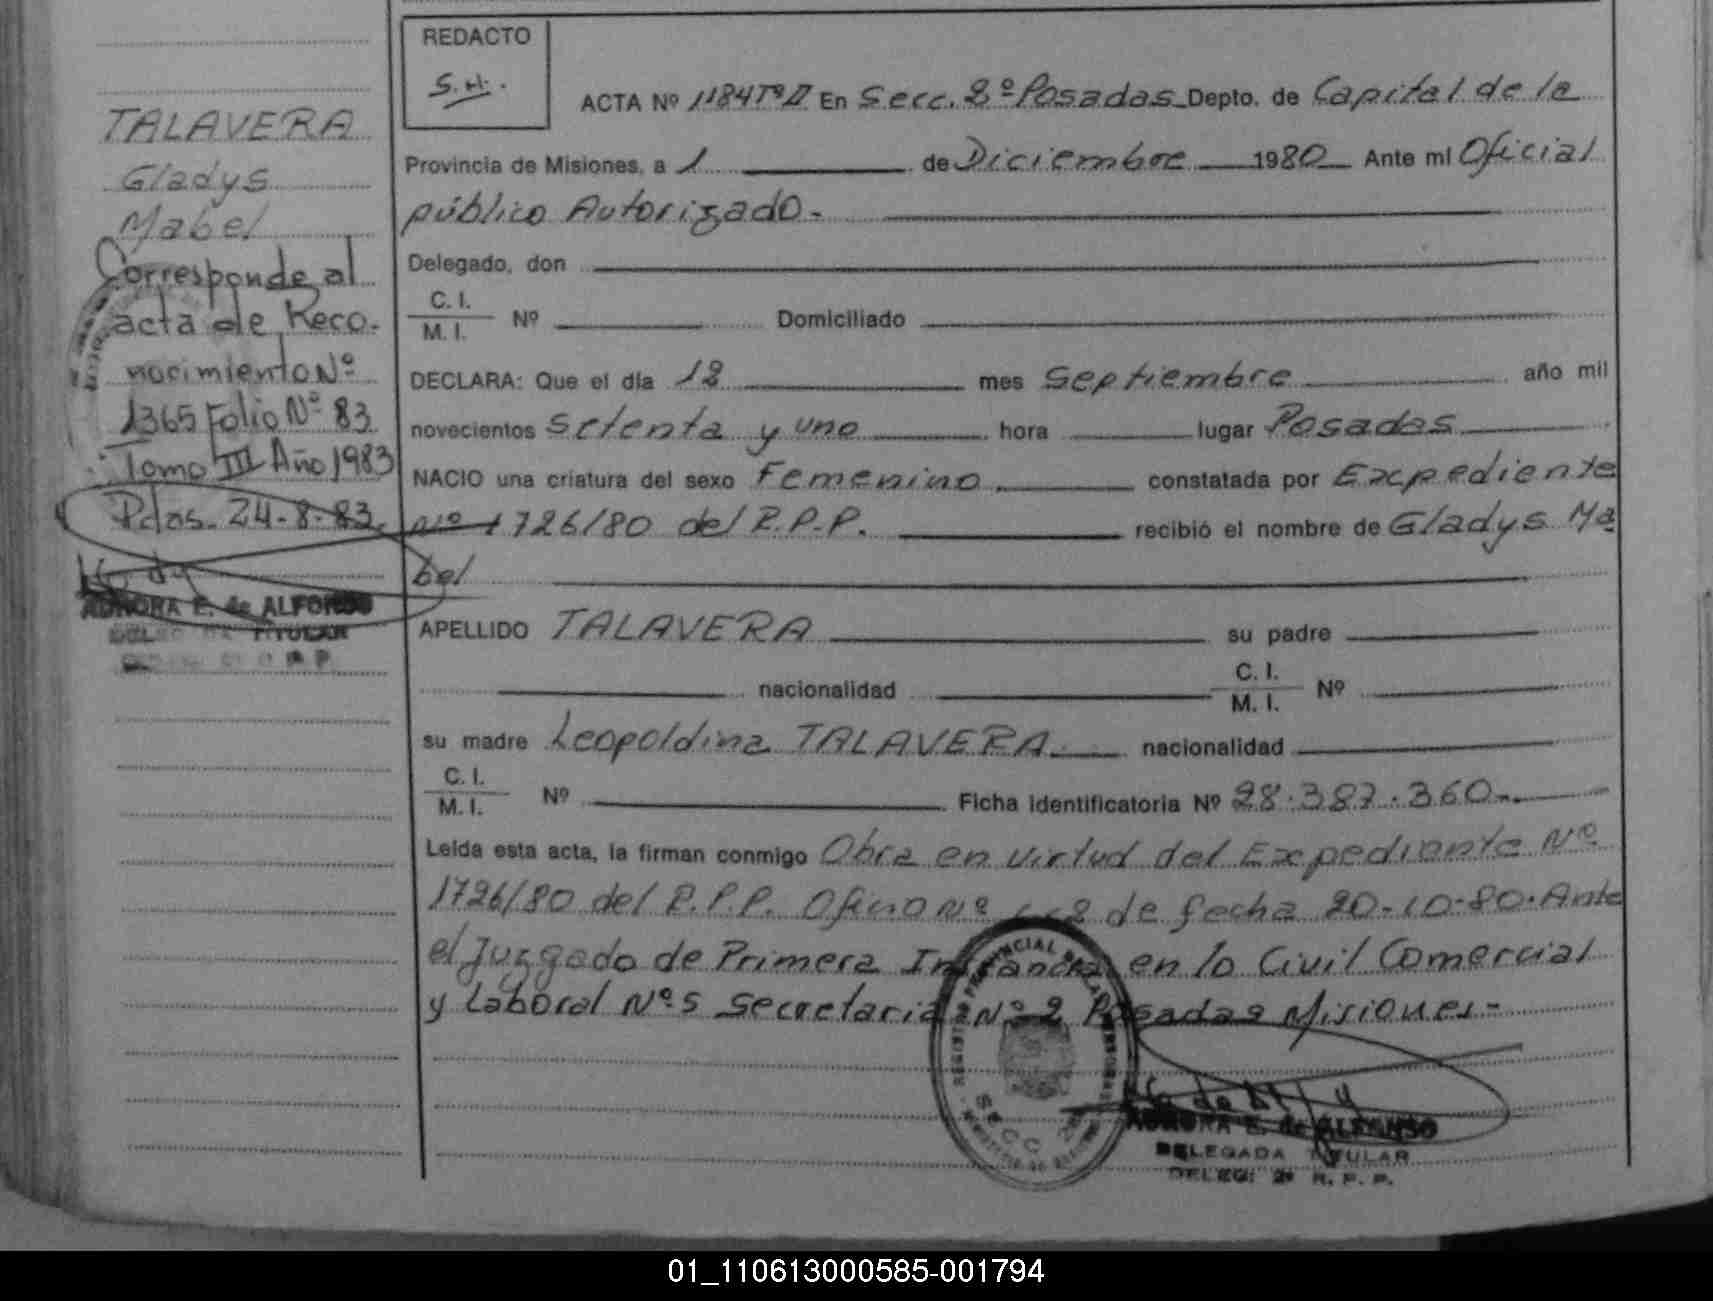 TALAVERA
Gladys
Mabel
Corresponde al
acta de Reco-
nocimiento Nº
1365 Folio Nº 83
Tomo III Año 1983
Pdas. 24-8-83.
AURORA E. de ALFONSO
TITULAR
R. P. P.
REDACTO
S.H.
ACTA Nº 1184 Tº II En Secc. 2º Posadas Depto. de Capital de la
Provincia de Misiones, a 1 de Diciembre 1980 Ante mí Oficial
público Autorizado.
Delegado, don
C. I.
M. I. Nº Domiciliado
DECLARA: Que el día 12 mes Septiembre año mil
novecientos setenta y uno hora lugar Posadas
NACIO una criatura del sexo Femenino constatada por Expediente
Nº 1726/80 del R.P.P. recibió el nombre de Gladys Ma
bel
APELLIDO TALAVERA su padre
nacionalidad C. I.
M. I. Nº
su madre Leopoldina TALAVERA nacionalidad
C. I.
M. I. Nº Ficha Identificatoria Nº 28.387.360-
Leída esta acta, la firman conmigo Obra en virtud del Expediente Nº
1726/80 del R.P.P. Oficio Nº de fecha 20-10-80. Ante
el Juzgado de Primera Instancia en lo Civil Comercial
y Laboral Nº 5 Secretaria Nº 2 Posadas Misiones-
REGISTRO PROVINCIAL DE LAS PERSONAS
SECC. 2ª
AURORA E. de ALFONSO
DELEGADA TITULAR
DELEG: 2ª R. P. P.
01_110613000585-001794